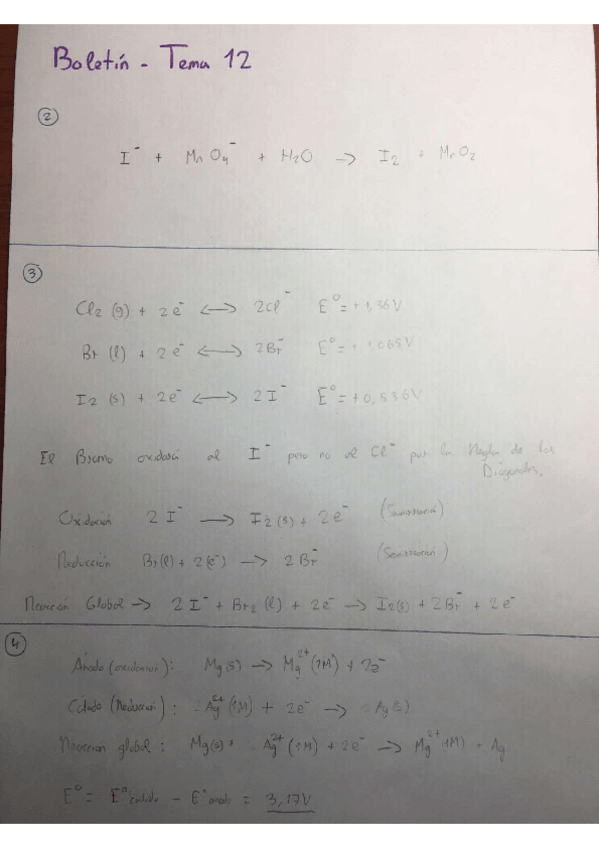 Boletín - Tema 12
②
I⁻ + MnO₄⁻ + H₂O → I₂ + MnO₂
③
Cl₂ (g) + 2e⁻ ⟷ 2Cl⁻ E° = +1,36V
Br (l) + 2e⁻ ⟷ 2Br⁻ E° = +1,065V
I₂ (s) + 2e⁻ ⟷ 2I⁻ E° = +0,536V
El Bromo oxidará al I⁻ pero no al Cl⁻ por la Regla de las
Diagonales.
Oxidación 2I⁻ → I₂(s) + 2e⁻ (Semirreacción)
Reducción Br(l) + 2(e⁻) → 2Br⁻ (Semirreacción)
Reacción Global → 2I⁻ + Br₂ (l) + 2e⁻ → I₂(s) + 2Br⁻ + 2e⁻
④
Ánodo (oxidación): Mg(s) → Mg²⁺(1M) + 2e⁻
Cátodo (Reducción): Ag²⁺(1M) + 2e⁻ → Ag(s)
Reacción global: Mg(s) + Ag²⁺(1M) + 2e⁻ → Mg²⁺(1M) + Ag
E° = E°cátodo - E°ánodo = 3,17V